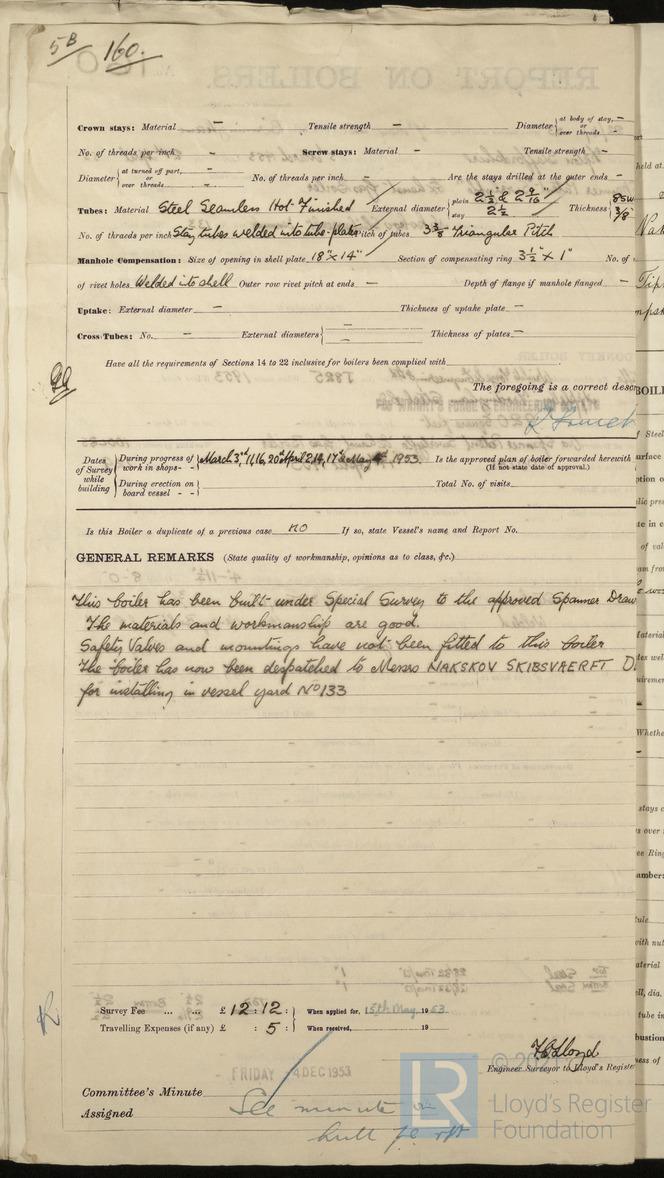 5B 160.
Crown stays: Material – Tensile strength – Diameter { at body of stay, – or over threads –
No. of threads per inch – Screw stays: Material – Tensile strength –
Diameter { at turned off part, – or over threads – No. of threads per inch – Are the stays drilled at the outer ends –
Tubes: Material Steel Seamless Hot Finished External diameter { plain 2½ & 2 9/16" stay 2½ Thickness { 3/8"
No. of threads per inch Stay tubes welded into tube plate Pitch of tubes 3 3/8 Triangular Pitch
Manhole Compensation: Size of opening in shell plate 18" x 14" Section of compensating ring 3½" x 1" No. of
of rivet holes Welded into shell Outer row rivet pitch at ends – Depth of flange if manhole flanged –
Uptake: External diameter – Thickness of uptake plate –
Cross Tubes: No. – External diameters { – – Thickness of plates –
Have all the requirements of Sections 14 to 22 inclusive for boilers been complied with
The foregoing is a correct desc
Dates of Survey while building { During progress of work in shops - - } March 3rd, 11, 16, 20th April 2, 14, 17th & May 4th 1953. Is the approved plan of boiler forwarded herewith (If not state date of approval.)
{ During erection on board vessel - - } Total No. of visits
Is this Boiler a duplicate of a previous case no If so, state Vessel's name and Report No.
GENERAL REMARKS (State quality of workmanship, opinions as to class, &c.)
This boiler has been built under Special Survey to the approved Spanner Draw
The materials and workmanship are good.
Safety Valves and mountings have not been fitted to this boiler
The boiler has now been despatched to Messrs NAKSKOV SKIBSVAERFT D.
for installing in vessel yard No 133
Survey Fee ... ... £ 12 : 12 : } When applied for, 15th May, 1953.
Travelling Expenses (if any) £ : 5 : } When received, 19
Lloyd
Engineer Surveyor to Lloyd's Register
FRIDAY 4 DEC 1953
Committee's Minute
Assigned See minute on
hull rpt
© 20
LR Lloyd's Register Foundation